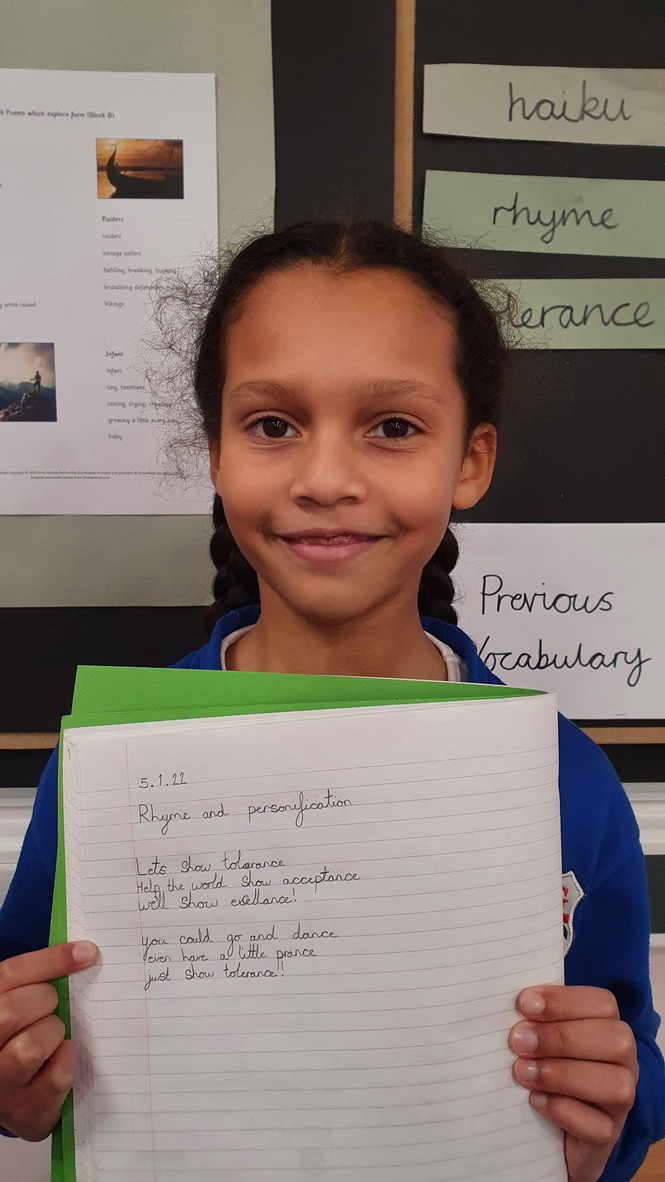 4 Poems which explore form (Block B)
Raiders
raiders
savage sailors
battling, breaking,
brutalising
Vikings
y arms raised
Infant
infant
tiny, toothless
cooing, crying,
growing a little every day
baby
haiku
rhyme
lerance
Previous
Vocabulary
5.1.22
Rhyme and personification
Lets show tolarance
Help the world show acceptance
we'll show exellance!
you could go and dance
even have a little prance
just show tolerance!!